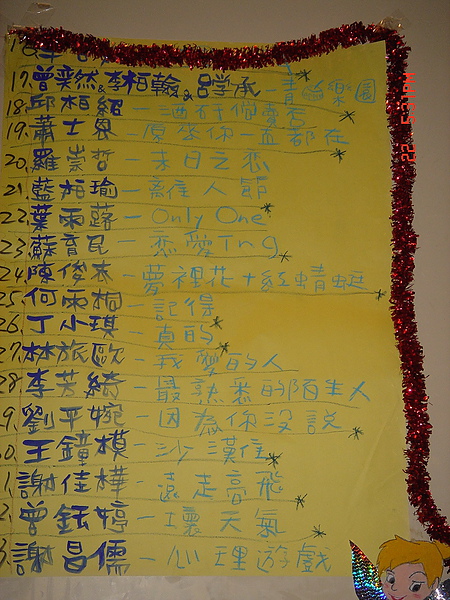 17.曾奕然&李柏翰&呂学承-青春樂園
18.邱柏紹-酒矸倘賣否
19.蕭士恩-原來你一直都在
20.羅崇哲-末日之恋
21.藍柏瑜-離人節
22.葉雨蕗-Only One
23.蘇育民-恋愛Ing
24.陳俊泰-夢裡花+紅蜻蜓
25.何雨桐-記得
26.丁小琪-真的
27.林旅歐-我愛的人
28.李芳綺-最熟悉的陌生人
9.劉平婉-因為你没說
0.王鐘模-沙漠住
1.謝佳樺-遠走高飛
2.曾鈺婷-壞天氣
3.謝昌儒-心理遊戲